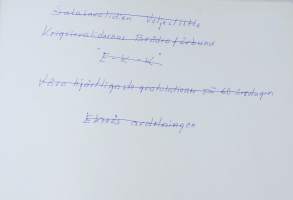 Veljesliitto
Krigsinvalidernas Brödraförbund
"E-K-K"
Våra hjärtligaste gratulationer på 60 årsdagen
Ekenäs avdelningen